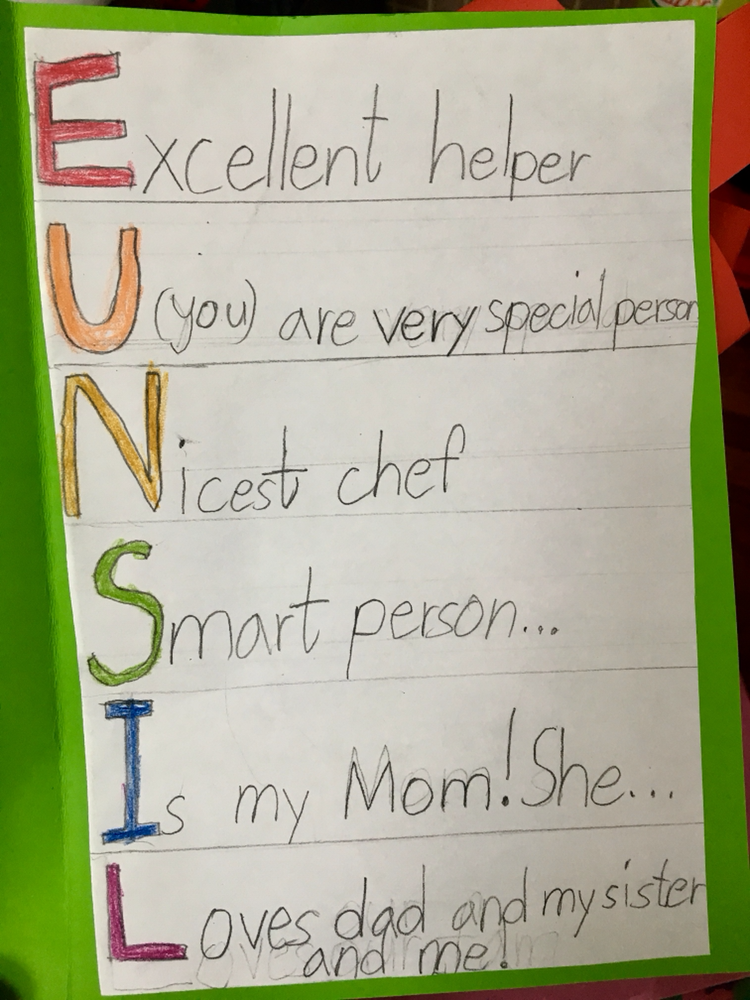 Excellent helper
U (you) are very special person
Nicest chef
Smart person...
Is my Mom! She...
Loves dad and my sister
and me!